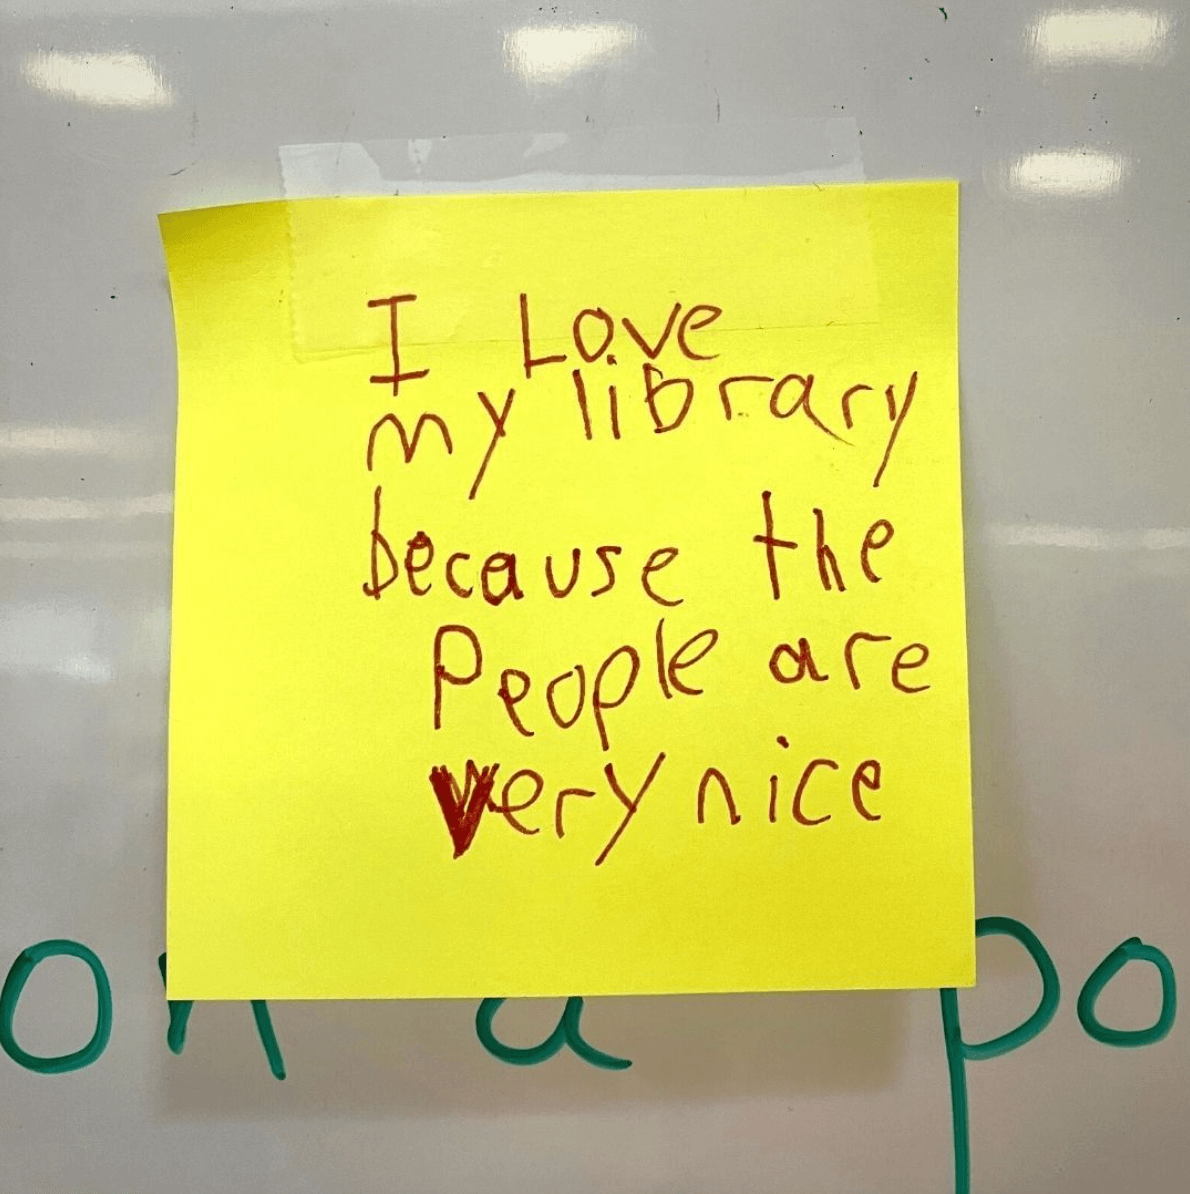 I Love
my library
because the
People are
very nice
on a po